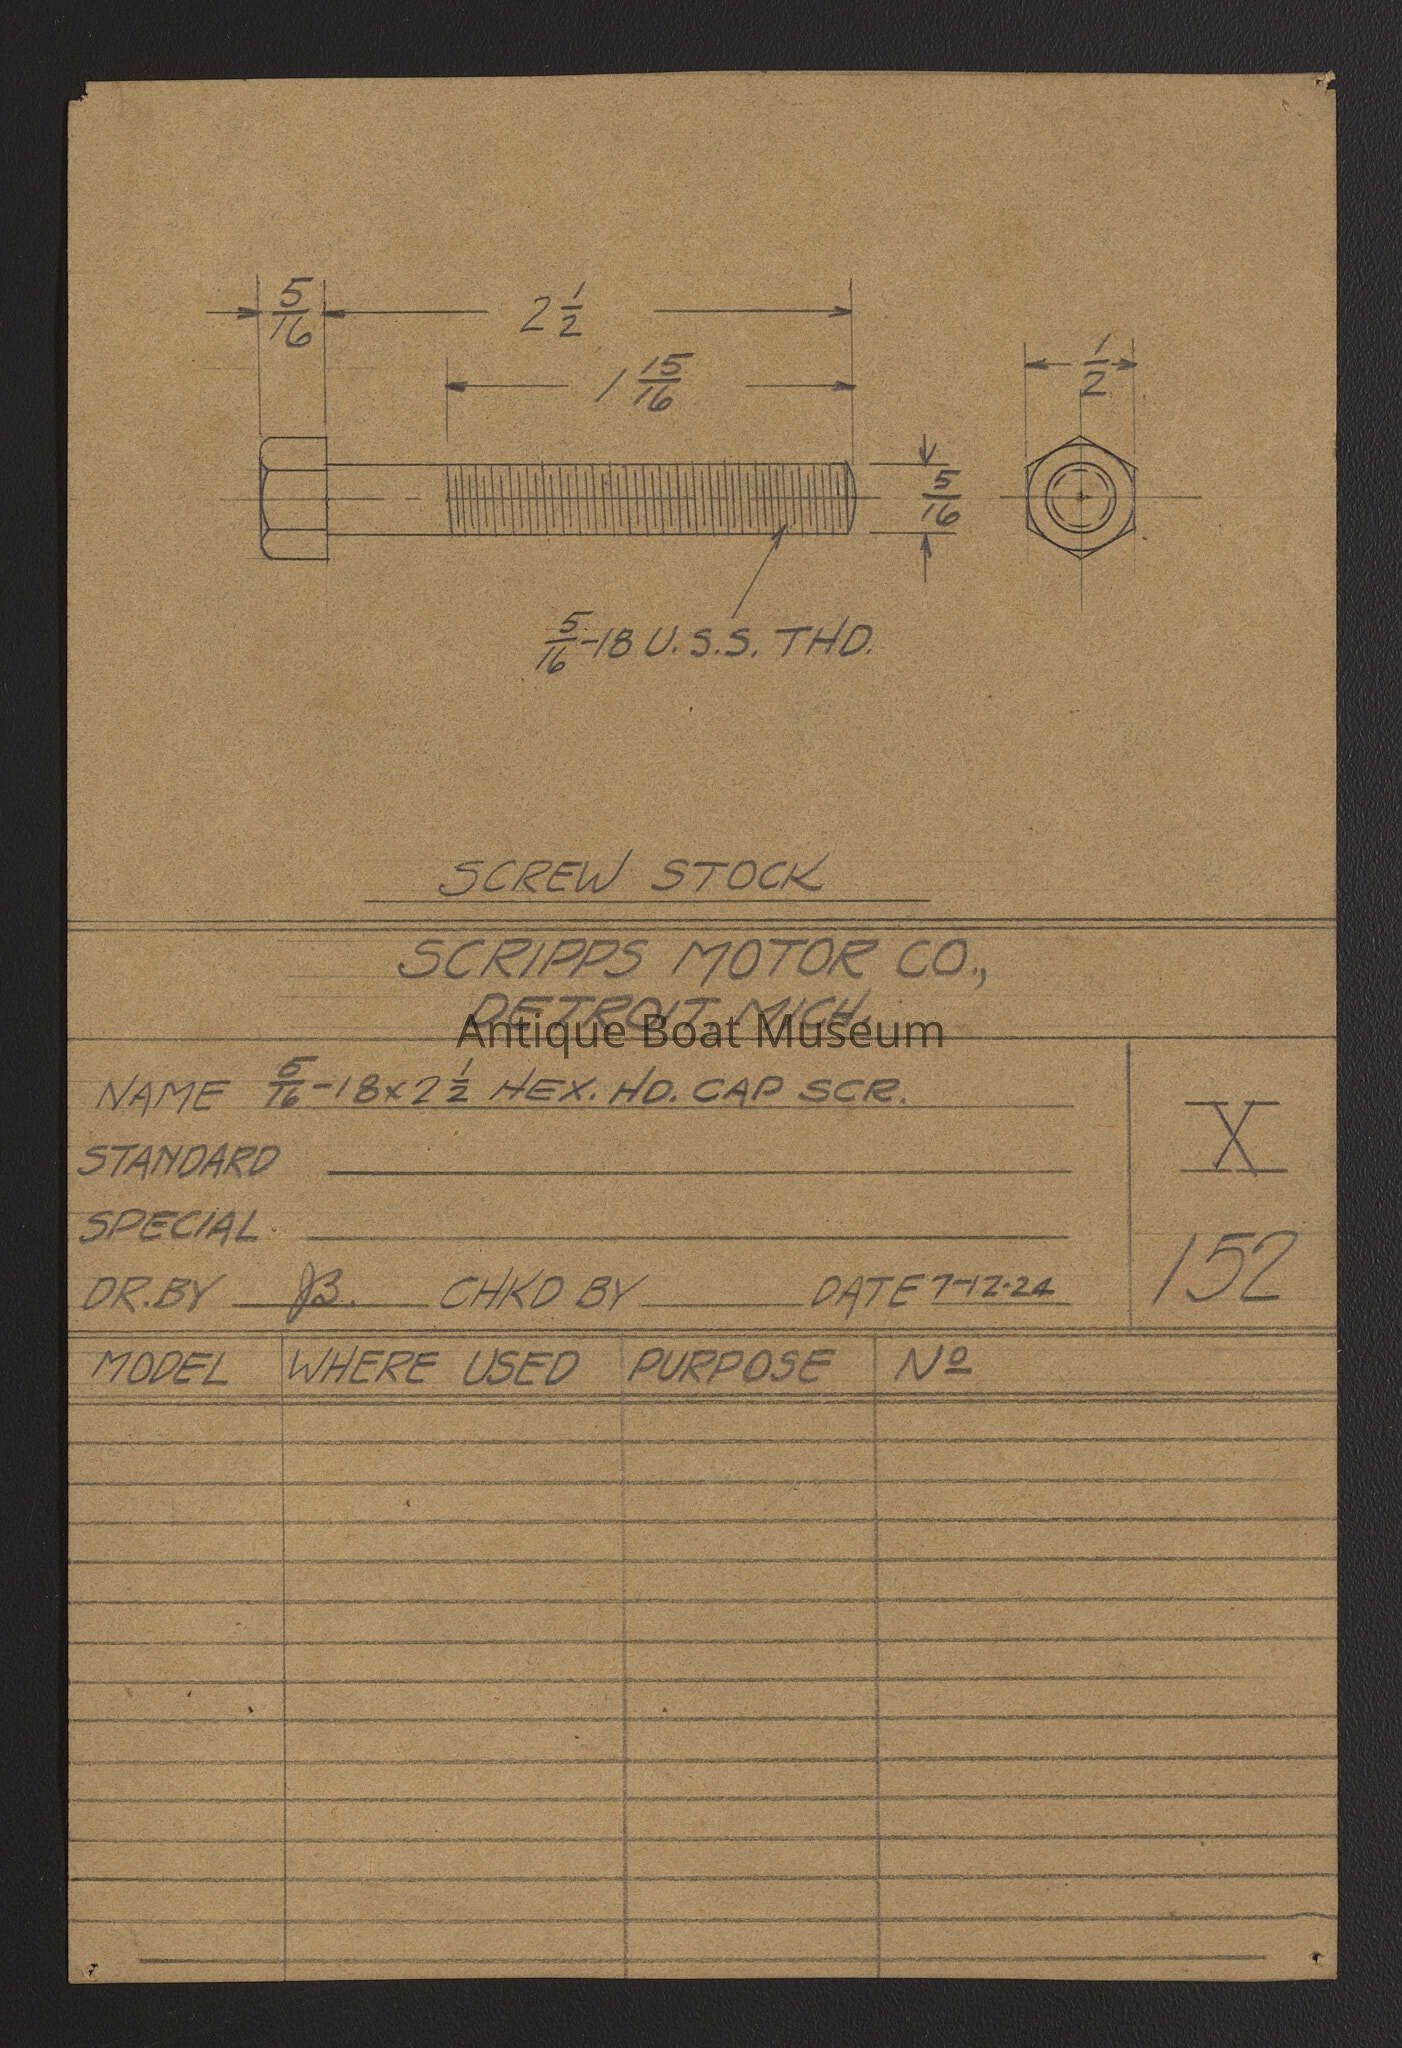 5/16 2 1/2
1 15/16 1/2
5/16
5/16-18 U.S.S. THD.
SCREW STOCK
SCRIPPS MOTOR CO.,
DETROIT MICH.
Antique Boat Museum
NAME 5/16-18x2 1/2 HEX. HD. CAP SCR.
X
STANDARD
SPECIAL.
152
DR.BY JB. CHKD BY DATE 7-12-24
MODEL WHERE USED PURPOSE Nº